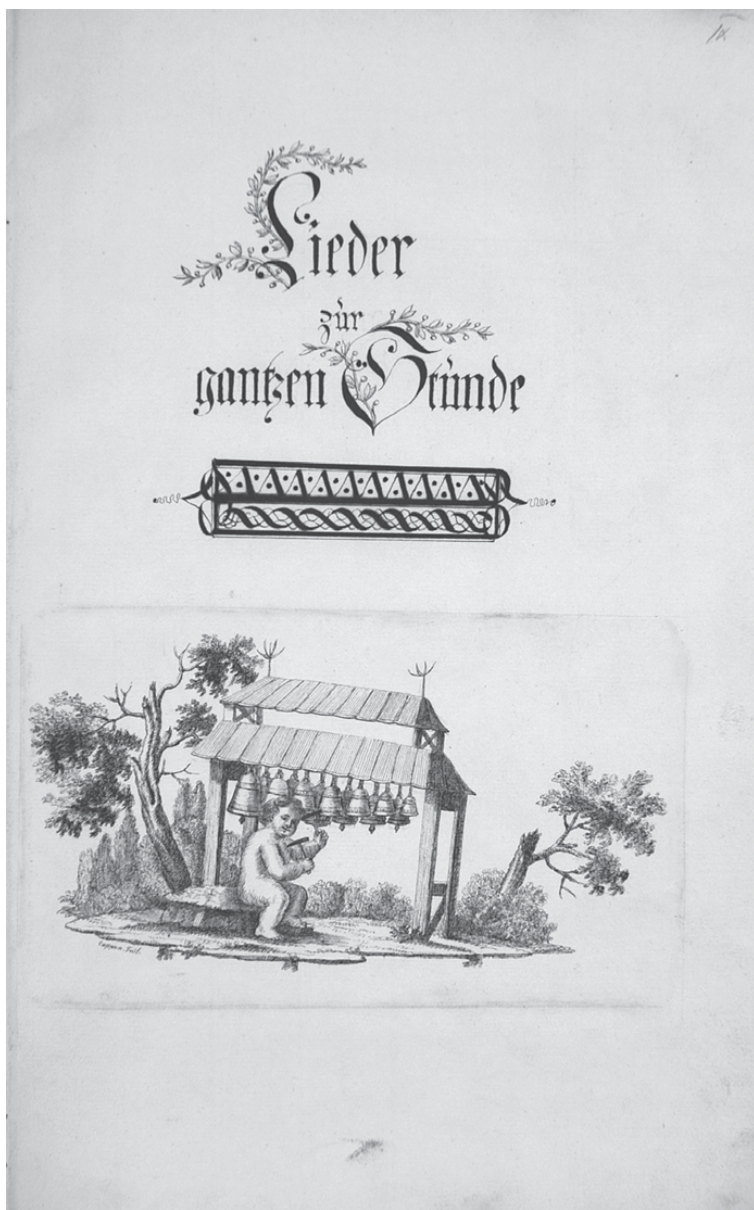 Lieder
zůr
gantzen Stůnde